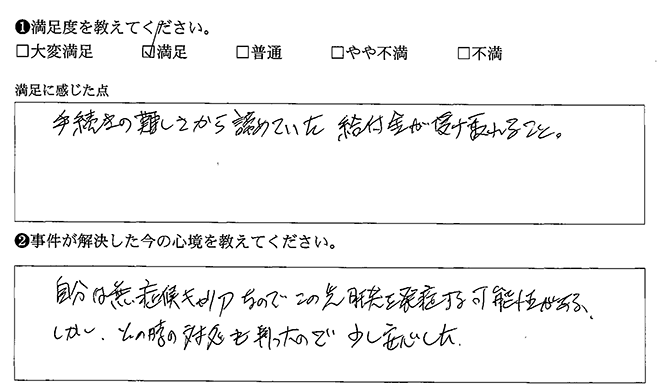 ❶満足度を教えてください。
□大変満足 ☑満足 □普通 □やや不満 □不満
満足に感じた点
手続きの難しさから諦めていた 給付金が受け取れること。
❷事件が解決した今の心境を教えてください。
自分は無症候キャリアなのでこの先肝炎を発症する可能性がある、
しかし、その時の対処も判ったので 少し安心した.